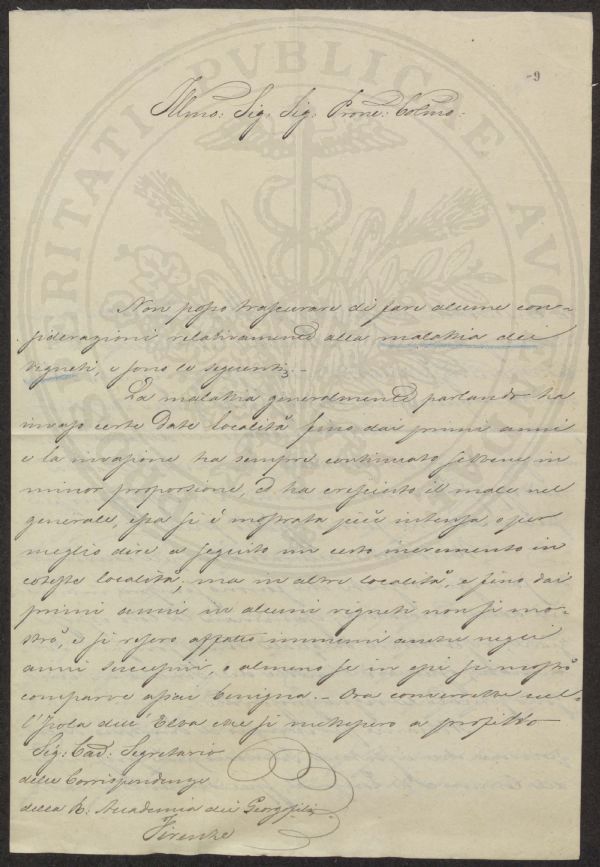 -9
Illmo: Sig: Sig: Prone: Colmo:
Non posso trascurare di fare alcune con-
siderazioni relativamente alla malattia dei
vigneti, e sono le seguenti; -
La malattia generalmente parlando ha
invaso certe date località fino dai primi anni
e la invasione ha sempre continuato sebbene in
minor proporsione, ha cresciuto il male nel
generale, essa si è mostrata più intensa, o per
meglio dire a seguito un certo incremento in
coteste località; ma in altre località, e fino dai
primi anni in alcuni vigneti non si mo-
strò, e si resero affatto immuni anche negli
anni successivi, o almeno se in essi si mostrò
comparve assai benigna. - Ora converrebbe nel-
l'Isola dell' Elba che si mettessero a profitto
Sig: Cad: Segretario
delle Corrispondenze
della R. Accademia dei Georgofili
Firenze
PROSPERITATI PVBLICAE AVGENDAE